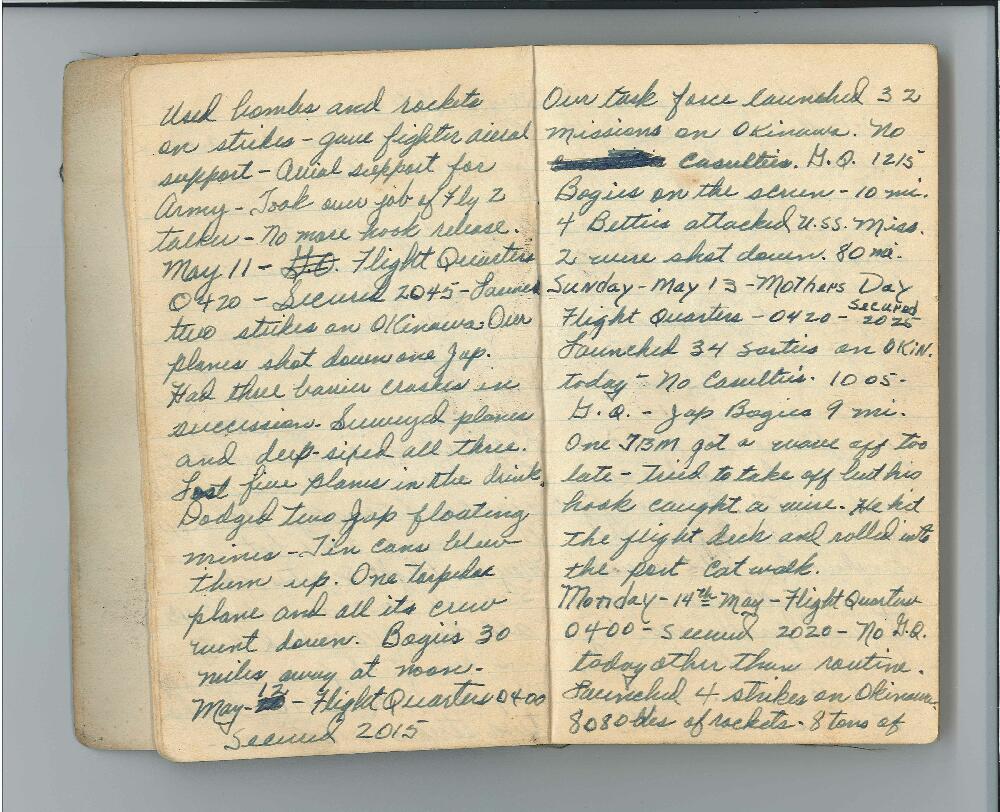 Used bombs and rockets
on strikes - gave fighter aieral
support - Aerial support for
Army - Took over job of Fly 2
talker - No more hook release.
May 11 - G.Q. Flight Quarters
0420 - Secured 2045 - Launched
two strikes on Okinawa. Our
planes shot down one Jap.
Had three barrier crashes in
succession. Surveyed planes
and deep-sixed all three.
Lost five planes in the drink.
Dodged two Jap floating
mines - Tin cans blew
them up. One torpedoe
plane and all its crew
went down. Bogies 30
miles away at noon -
May - 12 - Flight Quarters 0400
Secured 2015
Our task force launched 32
missions on Okinawa. No
Casulties. G.Q. 1215
Bogies on the screen - 10 mi.
4 Bettis attacked U.S.S. Miss.
2 were shot down. 80 mi.
Sunday - May 13 - Mothers Day
Flight Quarters - 0420 - Secured 2025
Launched 34 sorties on OKIN.
today - No Casulties. 1005 -
G.Q. - Jap Bogies 9 mi.
One TBM got a wave off too
late - Tried to take off but his
hook caught a wire. He hit
the flight deck and rolled into
the port cat walk.
Monday - 14th May - Flight Quarters
0400 - Secured 2020 - No G.Q.
today other than routine.
Launched 4 strikes on Okinawa.
8080 lbs of rockets - 8 tons of